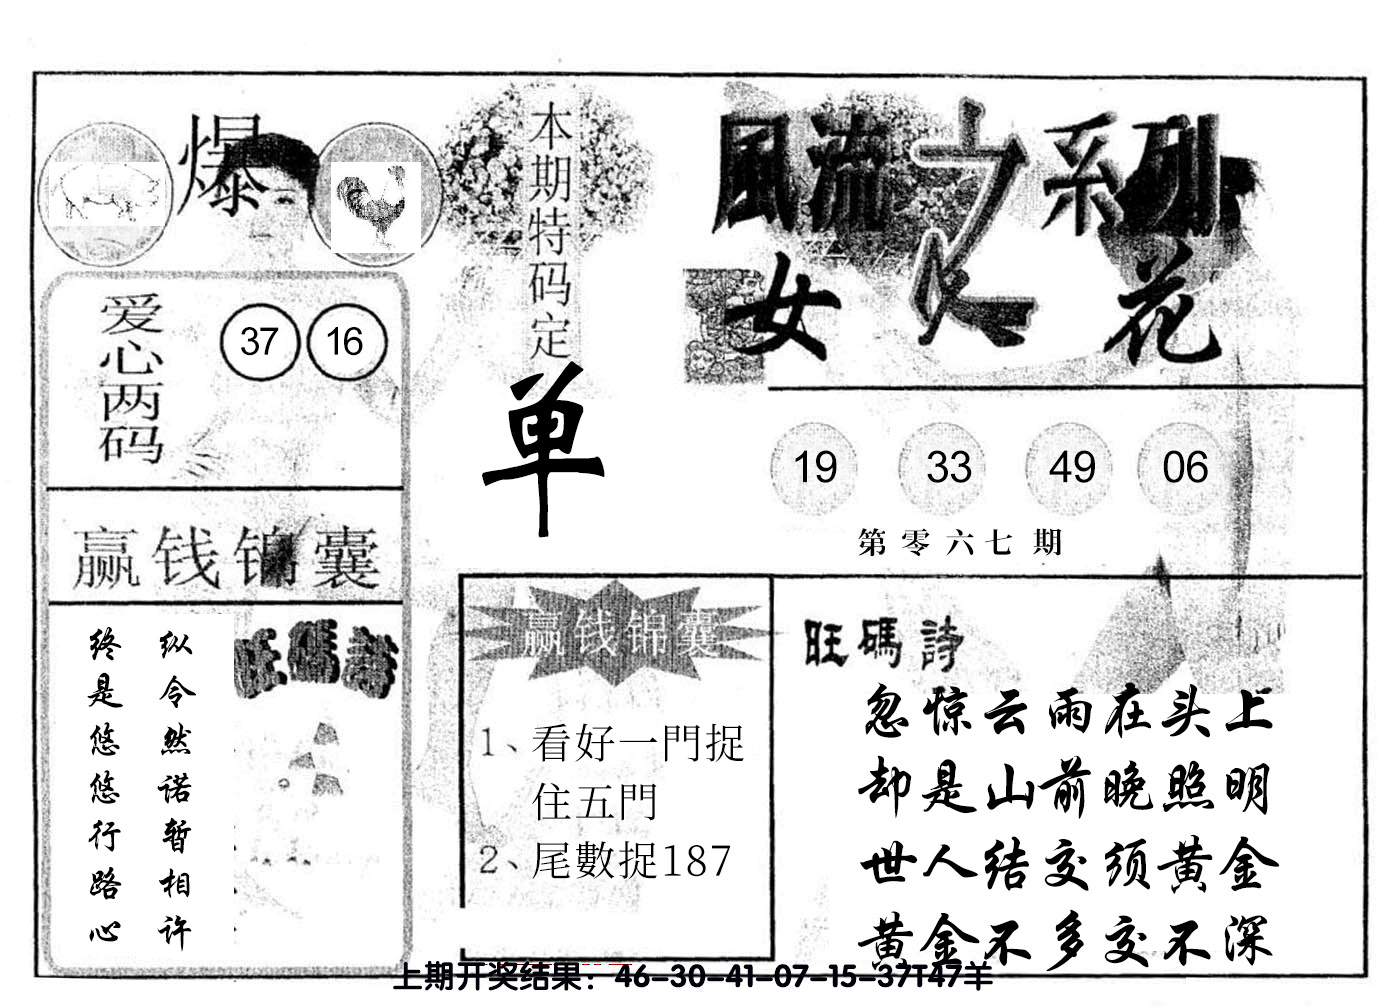 爆
本期特码定
单
風流之系列
女人花
爱心两码
37 16
19 33 49 06
第零六七期
赢钱锦囊
纵令然诺暂相许
终是悠悠行路心
旺碼詩
赢钱锦囊
1、看好一門捉
住五門
2、尾數捉187
旺碼詩
忽惊云雨在头上
却是山前晚照明
世人结交须黄金
黄金不多交不深
上期开奖结果：46-30-41-07-15-37T47羊